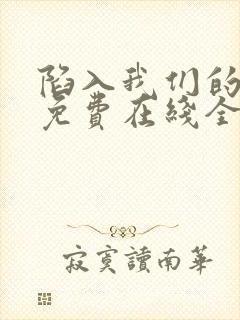 陷入我们的
免费在线全
寂寞讀南華